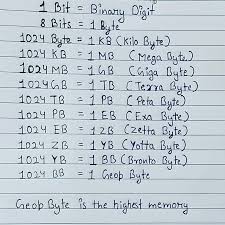 1 Bit = Binary Digit
8 Bits = 1 Byte
1024 Byte = 1 KB (Kilo Byte)
1024 KB = 1 MB (Mega Byte)
1024 MB = 1 GB (Giga Byte)
1024 GB = 1 TB (Terra Byte)
1024 TB = 1 PB (Peta Byte)
1024 PB = 1 EB (Exa Byte)
1024 EB = 1 ZB (Zetta Byte)
1024 ZB = 1 YB (Yotta Byte)
1024 YB = 1 BB (Bronto Byte)
1024 BB = 1 Geop Byte
Geop Byte is the highest memory